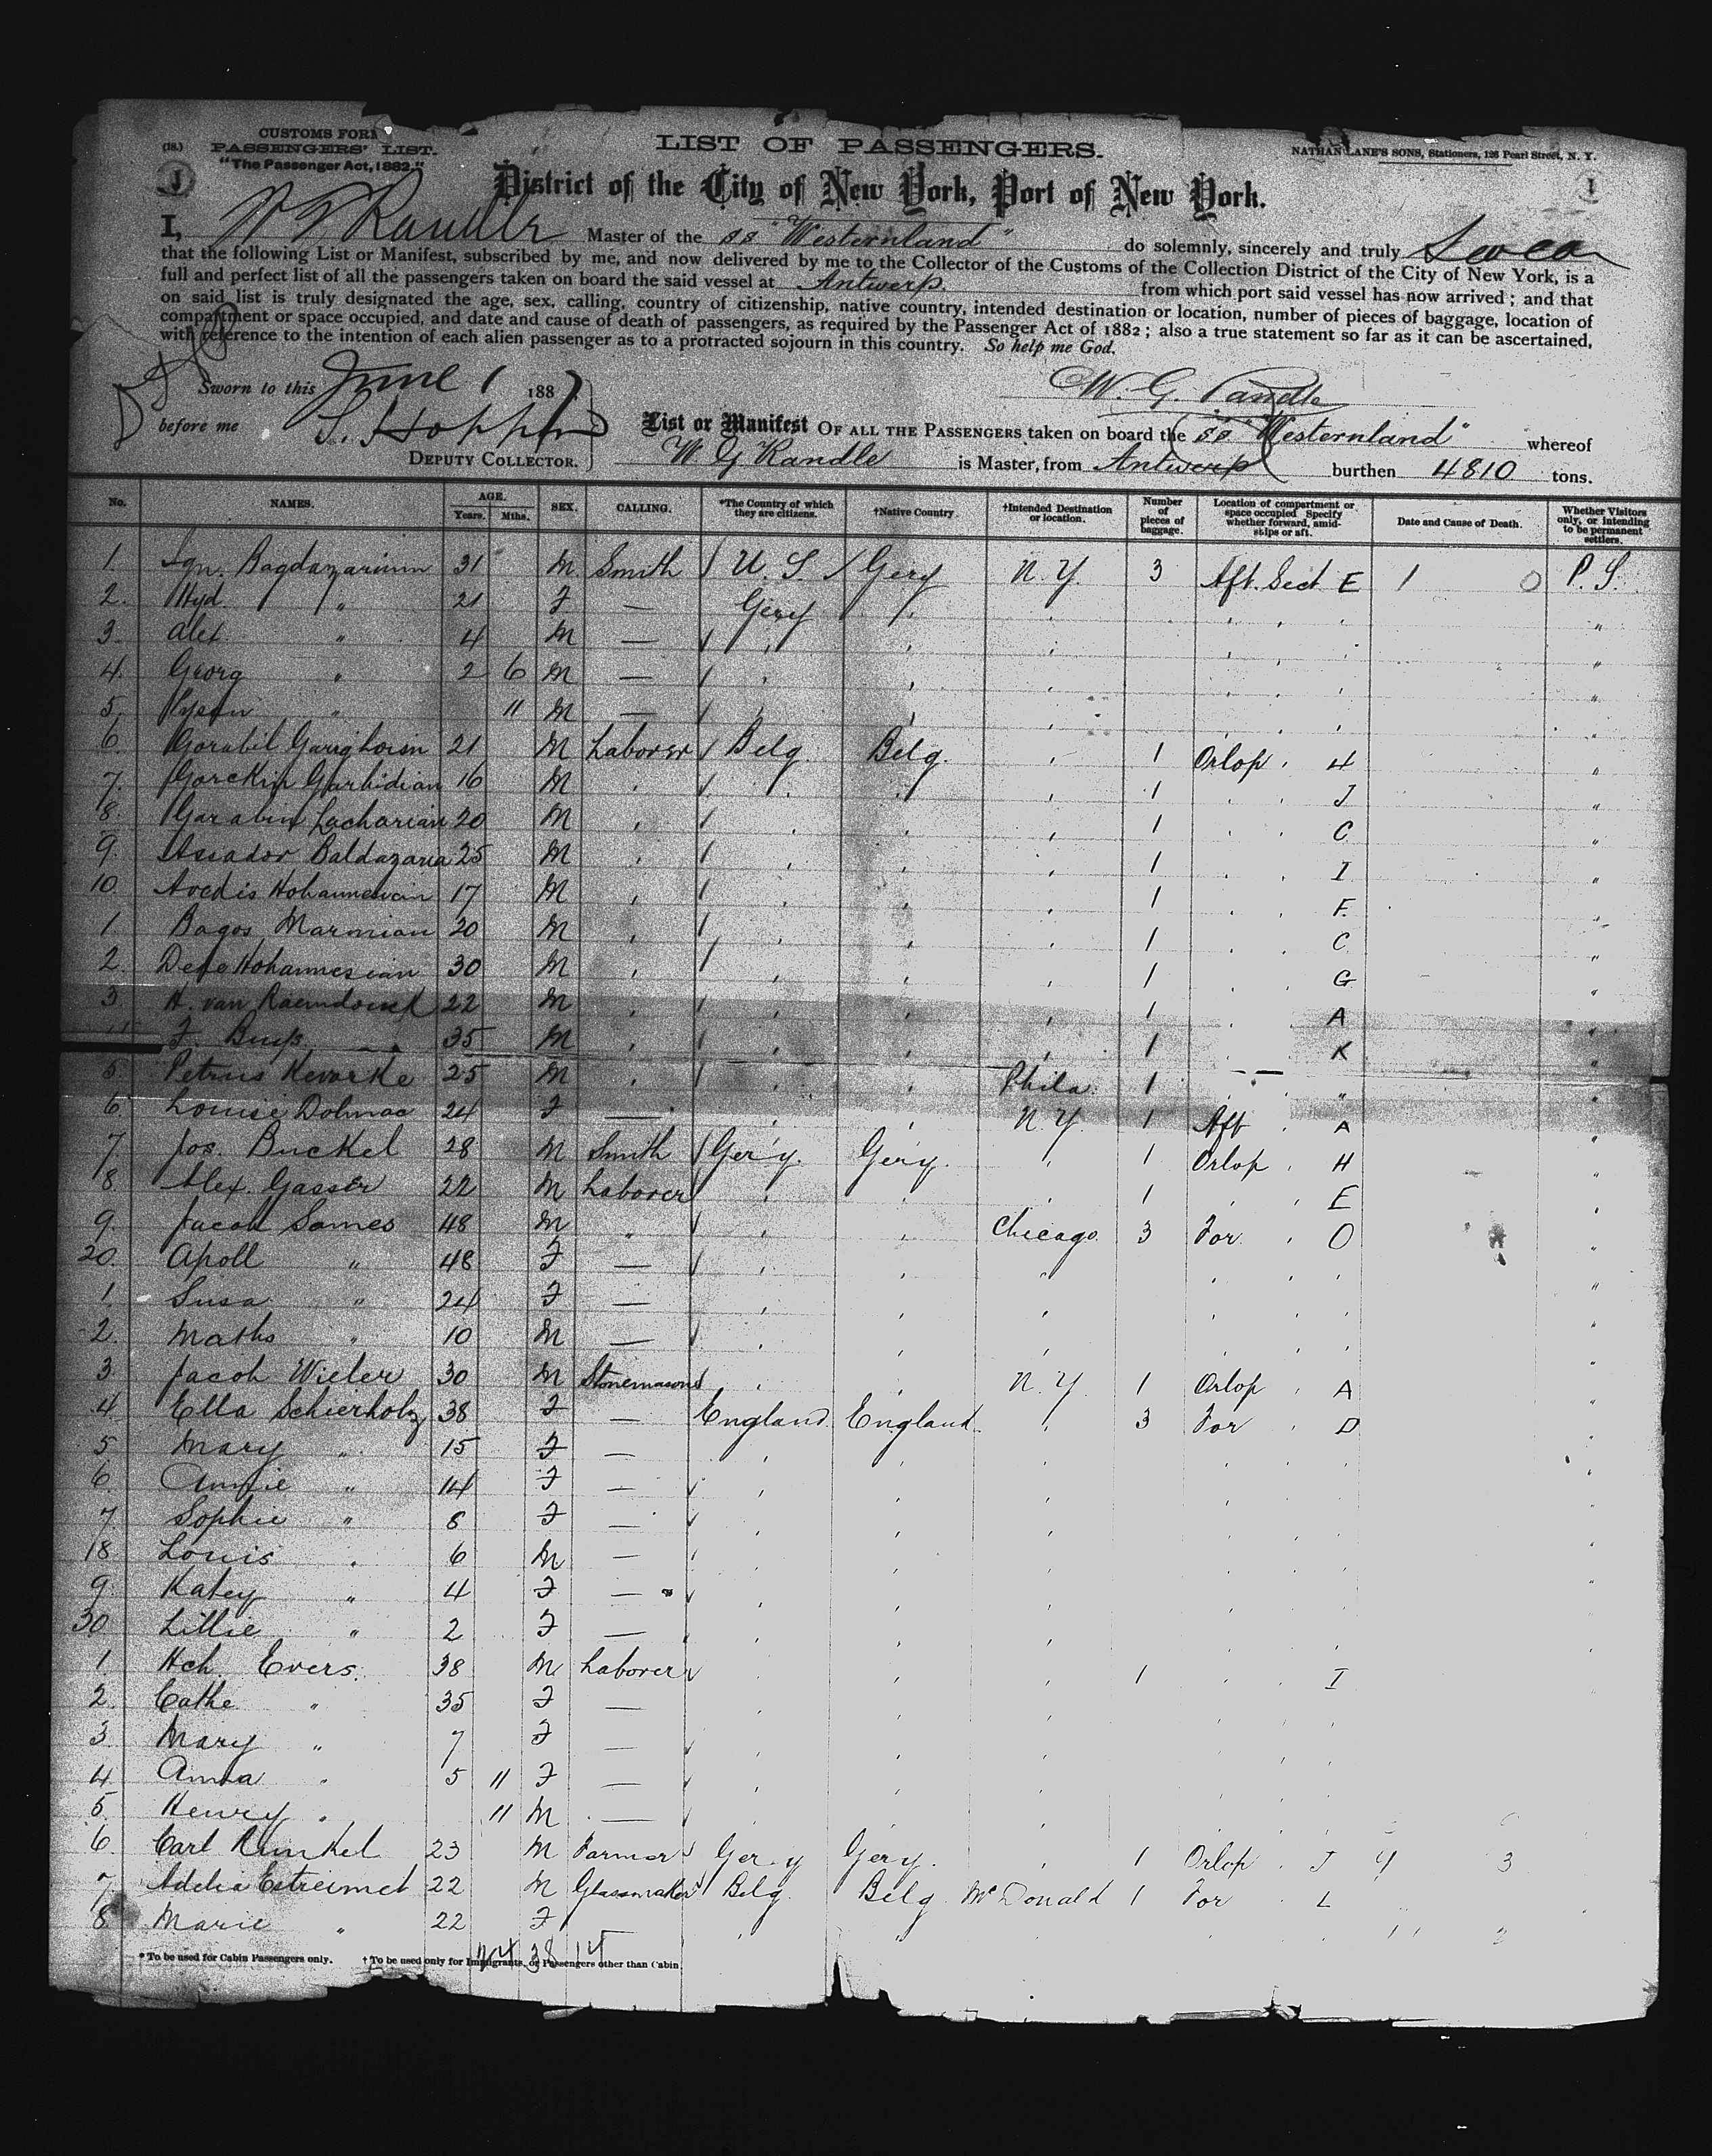 CUSTOMS FORM
(18.) PASSENGERS' LIST.
"The Passenger Act, 1882."
LIST OF PASSENGERS.
NATHAN LANE'S SONS, Stationers, 126 Pearl Street, N. Y.
District of the City of New York, Port of New York.
I, W G Randle Master of the SS "Westernland" do solemnly, sincerely and truly Swear
that the following List or Manifest, subscribed by me, and now delivered by me to the Collector of the Customs of the Collection District of the City of New York, is a
full and perfect list of all the passengers taken on board the said vessel at Antwerp. from which port said vessel has now arrived ; and that
on said list is truly designated the age, sex, calling, country of citizenship, native country, intended destination or location, number of pieces of baggage, location of
compartment or space occupied, and date and cause of death of passengers, as required by the Passenger Act of 1882 ; also a true statement so far as it can be ascertained,
with reference to the intention of each alien passenger as to a protracted sojourn in this country. So help me God.
Sworn to this June 1 1887 W. G. Randle
before me
DEPUTY COLLECTOR.
List or Manifest OF ALL THE PASSENGERS taken on board the SS "Westernland" whereof
W G Randle is Master, from Antwerp burthen 4810 tons.
No. NAMES. AGE. Years. Mths. SEX. CALLING. *The Country of which they are citizens. †Native Country. †Intended Destination or location. Number of pieces of baggage. Location of compartment or space occupied Specify whether forward, amidships or aft. Date and Cause of Death. Whether Visitors only, or intending to be permanent settlers.
1. 31 M Smith U. S. Gery N. Y. 3 Aft. Sect E 1 0 P. S.
2. Hyd. " 21 F — Gery "
3. Alex " 4 M — "
4. Georg " 2 6 M — "
5. " 11 M — "
6. 21 M Laborer Belg. Belg. 1 Orlop H "
7. 16 M 1 J "
8. 20 M 1 C "
9. 25 M 1 I "
10. Avedis 17 M 1 F. "
1. Bagos Marmian 20 M 1 C "
2. Hohannesian 30 M 1 G "
3. H. van Raemdonck 22 M 1 A "
35 M 1 K "
5. Petrus Kevorke 25 M Phila. 1 " "
6. Louise 24 F — N. Y. 1 Aft A "
7. Jos. Buckel 28 M Smith Gery. Gery. " 1 Orlop H "
8. Alex. Gasser 22 M Laborer 1 E "
9. Jacob Sames 48 M " Chicago. 3 For O "
20. Apoll " 48 F — " "
1. Susa " 24 F — "
2. Maths " 10 M — "
3. Jacob Wieler 30 M Stonemason N. Y. 1 Orlop A "
4. Ella Schierholz 38 F — England England 3 For D
5. Mary " 15 F —
6. Annie " 14 F —
7. Sophie " 8 F —
18 Louis " 6 M —
9. Katey " 4 F —
30 Lillie " 2 F —
1. Hch. Evers. 38 M Laborer 1 I
2. Cathe " 35 F —
3. Mary " 7 F —
4. Anna " 5 11 F —
5. Henry " 11 M —
6. Carl Runkel 23 M Farmer Gery Gery. 1 Orlop J 4 3
7. Adelia 22 M Glassmaker Belg. Belg McDonald 1 For L
8. Marie " 22 F
24 38 14
* To be used for Cabin Passengers only. † To be used only for Immigrants, or Passengers other than Cabin